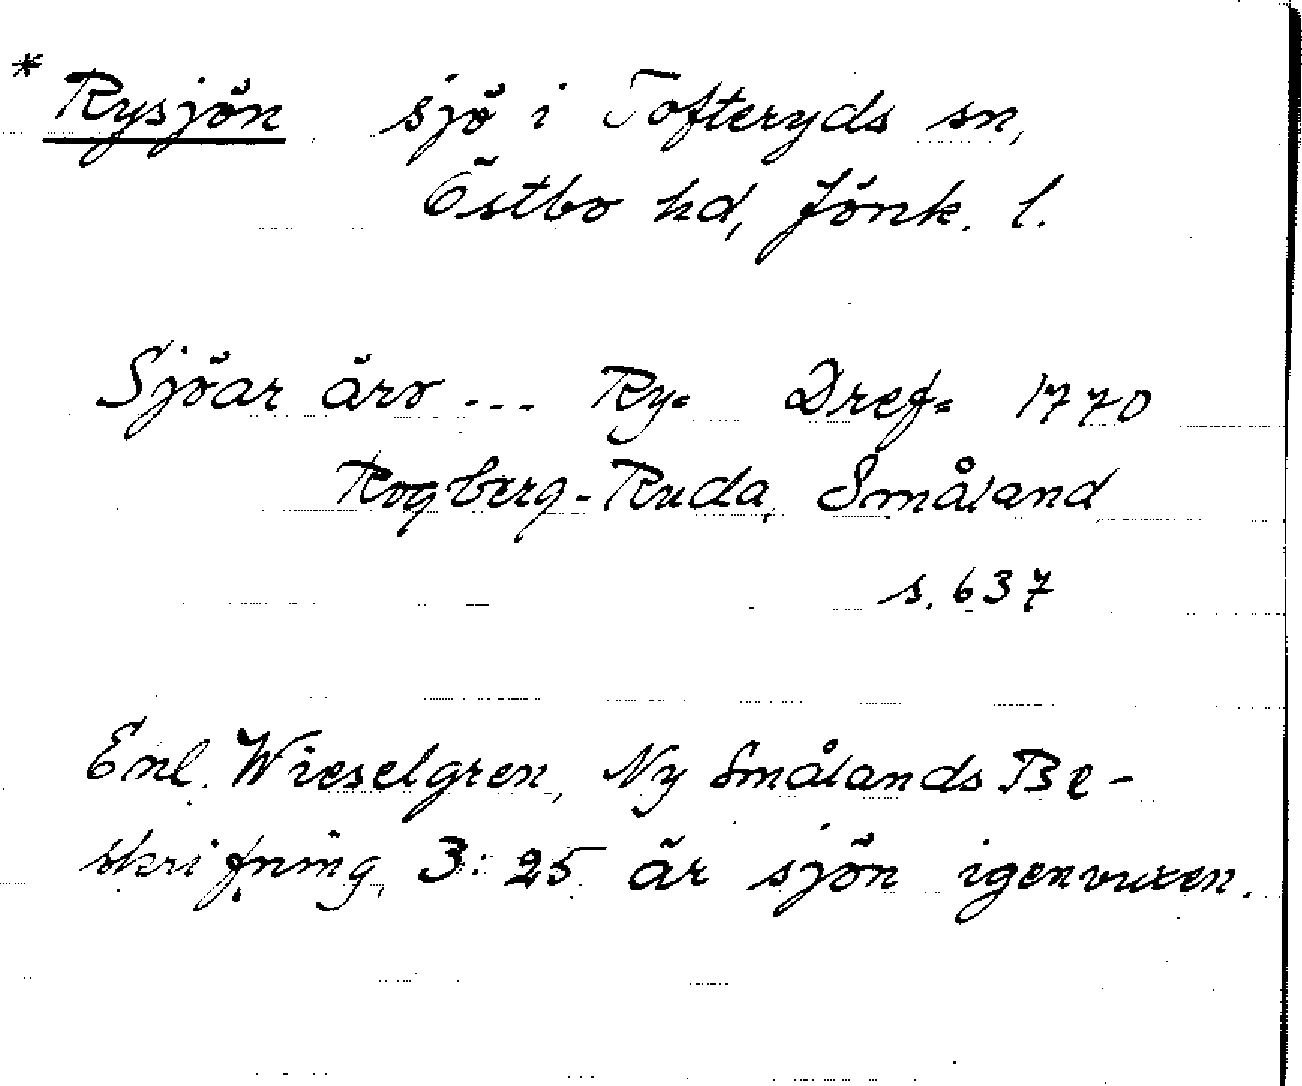 * Rysjön sjö i Tofteryds sn,
Östbo hd, Jönk. l.
Sjöar äro --- Ry= Dref= 1770
Rogberg-Ruda, Småland
s. 637
Enl. Wieselgren, Ny Smålands Be-
skrifning, 3:25 är sjön igenvuxen.